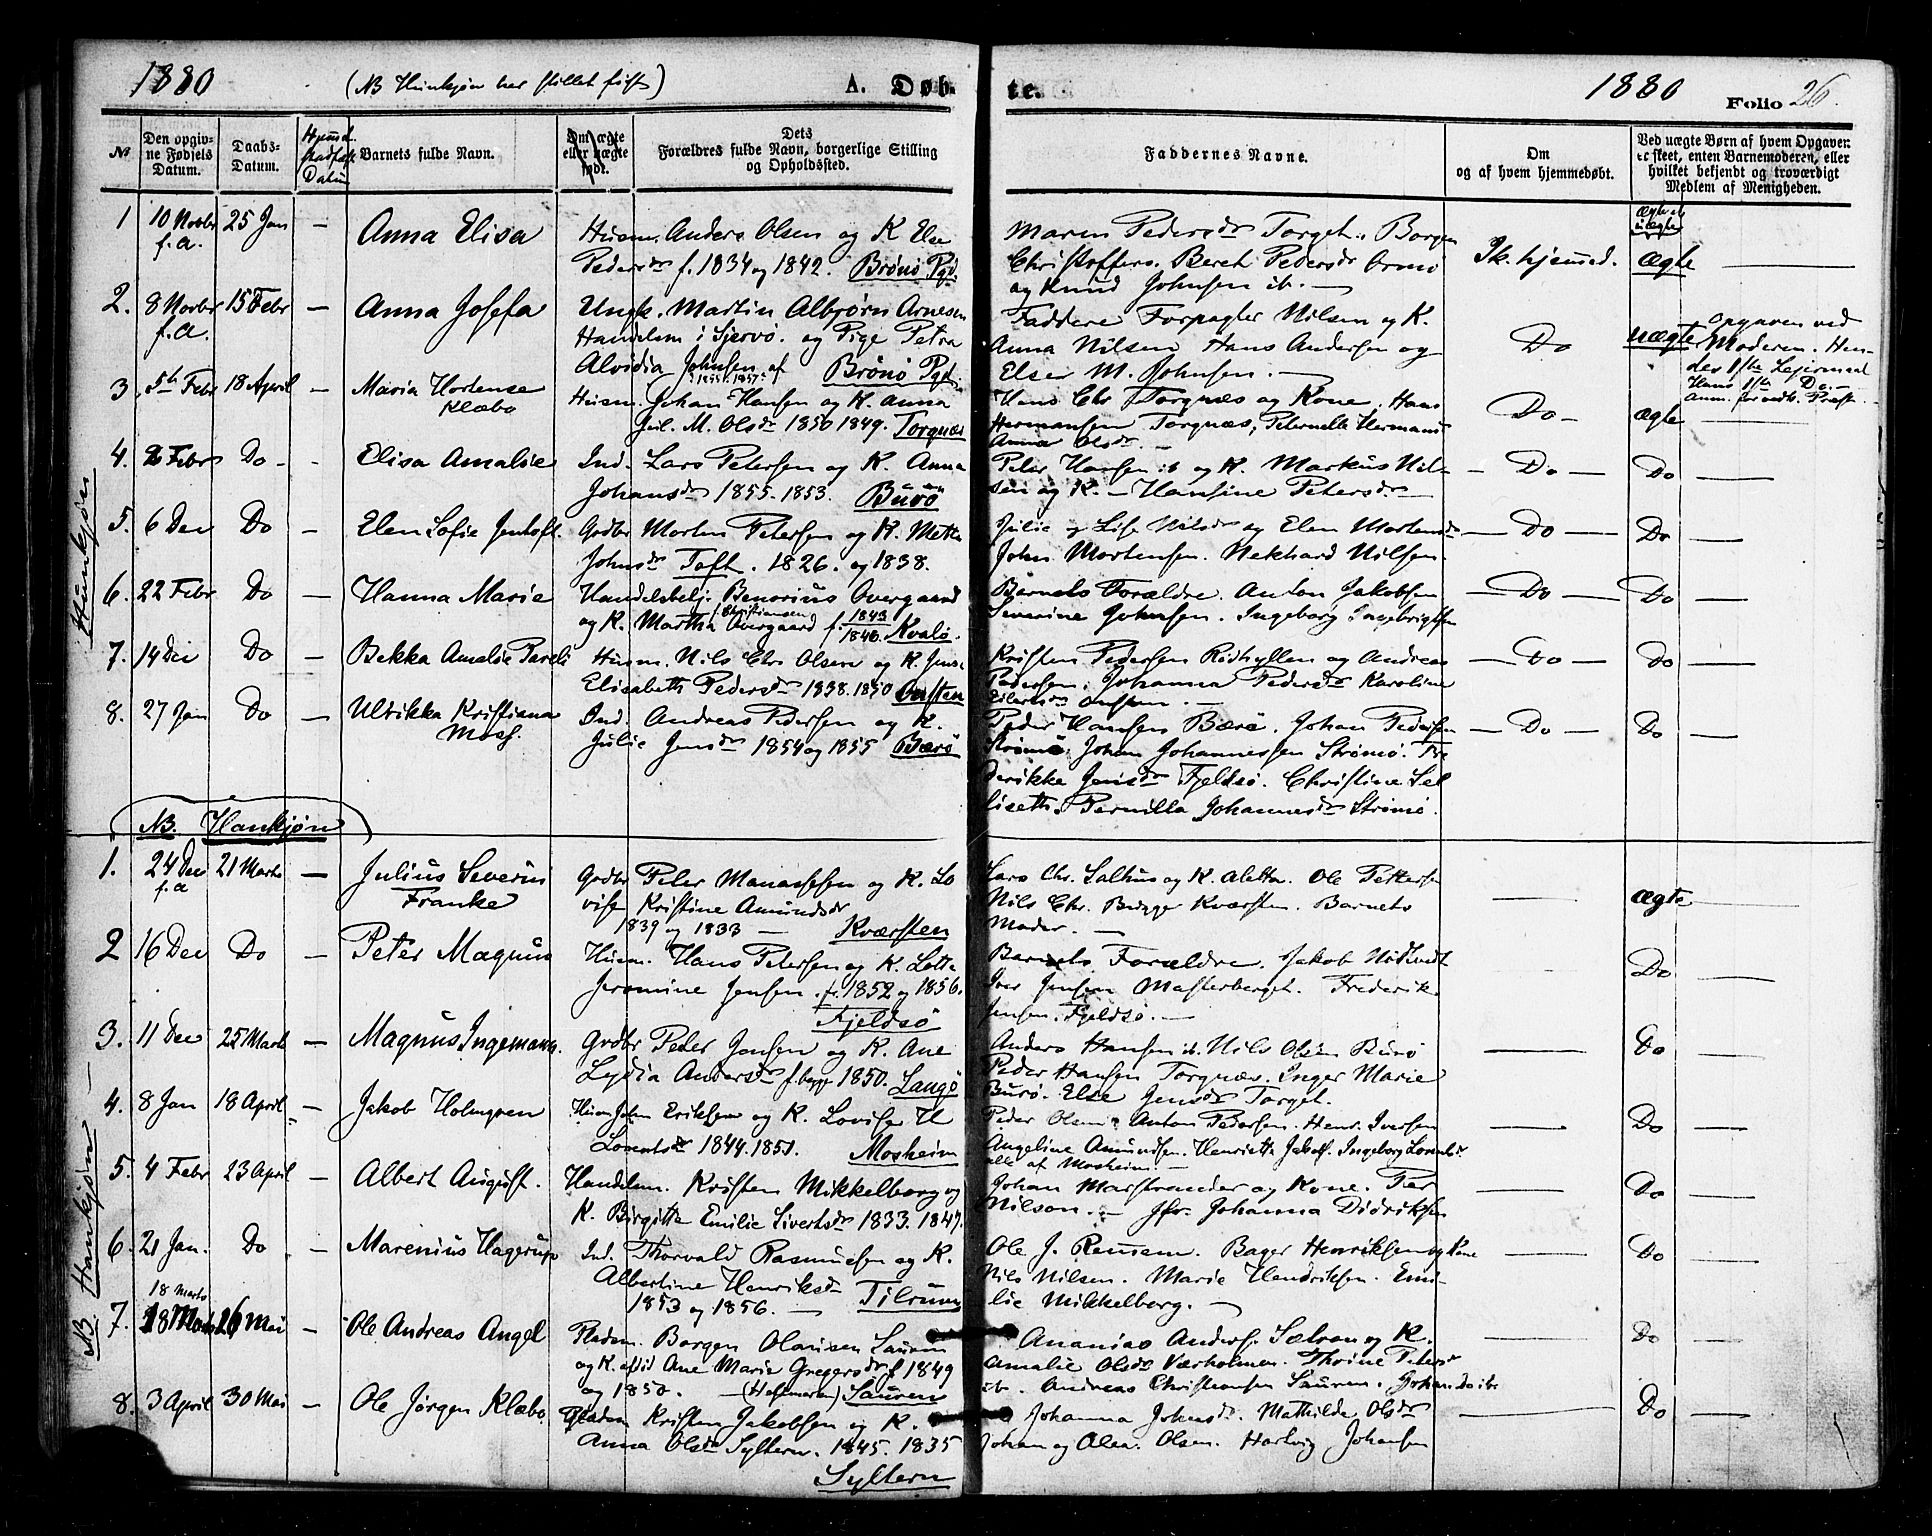 1880 (NB Hunkjøn her stillet først) A. Døb- te. 1880 Folio 26.
No Den opgivne Fødsels Datum. Daabs-Datum. Hjemmed. Datum Barnets fulde Navn. Om ægte eller uægte født. Dets Forældres fulde Navn, borgerlige Stilling og Opholdssted. Faddernes Navne. Om og af hvem hjemmedøbt. Ved uægte Børn af hvem Opgaven er skeet, enten Barnemoderen, eller hvilket bekjendt og troværdigt Medlem af Menigheden.
Hunkjøn
ægte el. uægte
1 10 Novbr f.a. 25 Jan — Anna Elisa
Husm. Anders Olsen og K Else
Pedersdr f. 1834 og 1842. Brønø Pgd.
Maren Pedersdr Torget. Borgen
Christoffers. Beret Pedersdr
og Knud Johnsen ib. —
Ik. hjemmed. ægte —
2. 8 Novbr f.a. 15 Febr — Anna Josefa
Ungk. Martin Albjørn Arnesen
Handelsm i Sjervø. og Pige Petra
Alvidia Johnsen af Brønø Pgd.
1855. 1857.
Faddere Forpagter Nilsen og K.
Anna Nilsen Hans Andersen og
Elser M. Johnsen. —
Do uægte Opgaven ved
Moderen. Hendes 1ste Lejermaal
Hans 1ste Do. —
3 5te Febr 18 April — Maria Hortense
Klæbo
Husm. Johan Hansen og K. Anna
Jul. M. Olsdr 1850 1849. Torgnæs
Hans Chr Torgnæs og Kone. Hans
Hermansen Torgnæs, Peternelle Hermans
Anna Olsdr —
Do — ægte —
4. 2 Febr Do - - Elisa Amalie
Ind. Lars Petersen og K. Anna
Johansdr 1855. 1853. Burö
Peter Hansen ib og K. Markus Nilsen
og K. — Hansine Petersdr
— Do — Do —
5. 6 Dec Do — Elen Sofie Jentoft.
Gdbr Morten Petersen og K. Mette
Johnsdr Toft. 1826. og 1838.
Julie og Lise Nilsdr og Elen Mortensdr
John Mortensen. Nekhard Nilsen
— Do — Do —
6. 22 Febr Do — Hanna Marie
Handelsbetj. Benorius Overgaard
og K. Martha Overgaard f. Christiansen f. 1843 1846. Kvalø.
Barnets Forældre. Anton Jakobsen
Severine Johnsen. Ingeborg Ingebrigtsen
— Do — Do —
7. 14 Dec Do — Bekka Amalie Pareli
Husm. Nils Chr. Olsen og K. Jens.
Elisabeth Pedersdr 1838. 1850
Kristen Pedersen Rødhyllen og Andreas
Pedersen. Johanna Pedersdr Karoline
— Do — Do —
8. 27 Jan Do — Ulrikka Kristiana
Moss.
Ind. Andreas Pedersen og K.
Julie Jensdr 1854 og 1855 Bærö
Peder Hansen Bærö. Johan Pedersen
Strømö. Johan Johannessen Strømö. Fre
derikke Jensdr Fjeldsö. Christine Sel
liseth. Pernilla Johannesdr Strømö.
— Do — Do —
NB. Hankjøn
NB. Hankjøn —
1. 24 Dec f.a 21 Marts — Julius Severin
Franke
Grdbr Peter Manassesen og K. Lo
vise Kristine Amundsdr
1839 og 1833 — Kværsten
Lars Chr. Salhus og K. Aletta. Ole Pettersen
Nils Chr. Brygger Kværsten. Barnets
Moder. —
— ægte —
2 16 Dec Do — Peter Magnus
Husm. Hans Petersen og K. Lotte
Jeromine Jensen. f. 1852 og 1856.
Fjeldsö
Barnets Forældre. Jakob
Iver Jensen Masterberget. Frederik
Jensen. Fjeldsö. —
— Do —
3. 11 Dec 25 Marts — Magnus Ingemann.
Grdbr Peder Jensen og K. Ane
Lydia Andersdr f. begge 1850. Langö
Anders Hansen ib. Nils Olsen Burö
Peder Hansen Torgnæs. Inger Marie
Burö. Else Jensdr Torget.
— Do —
4. 8 Jan 18 April — Jakob Holmgren
Husm John Eriksen og K. Lovise H
Lorentsdr 1844. 1851. Mosheim
Peder Olsen Anton Pedersen. Henr. Iversen
Angeline Amundsen. Henriette Jakobs. Ingeborg Lorentsdr
alle af Mosheim. —
— Do —
5. 4 Febr 23 April — Albert August.
Handelsm. Kristen Mikkelborg og
K. Birgitte Emilie Sivertsdr 1833. 1847.
Johan Marstrander og Kone. Per
Nilson. — Jfr. Johanna Didriksen
— Do —
6. 21 Jan. Do — Marenius Hagerup
Ind. Thorvald Rasmusen og K.
Albertine Henriksdr
1853 og 1856. — Tilrum
Ole J. Remsen. Bager Henriksen og Kone
Nils Nilsen. Marie Hendriksen. Emi
lie Mikkelborg. —
— Do —
18 Marts
7. 18 Marts 26 Mai — Ole Andreas Angel
Pladsm. Borgen Olausen Sauren
og K. Ane Maria Gregersdr f. 1849
og 1850. — Sauren
Ananias Anders. Sælran og K.
Amalie Olsdr Værholmen. Thrine Petersdr
ib. Andreas Christiansen Sauren. Johan Do ibr
— Do —
8. 3 April 30 Mai — Ole Jørgen Klæbo.
Pladsm Kristen Jakobsen og K.
Anna Olsdr Sylteren. 1845. 1835
Sylteren
Johanna Johnsdr. Mathilde Olsdr
Johan og Olea. Olsen. Hartvig Johansen
— Do —